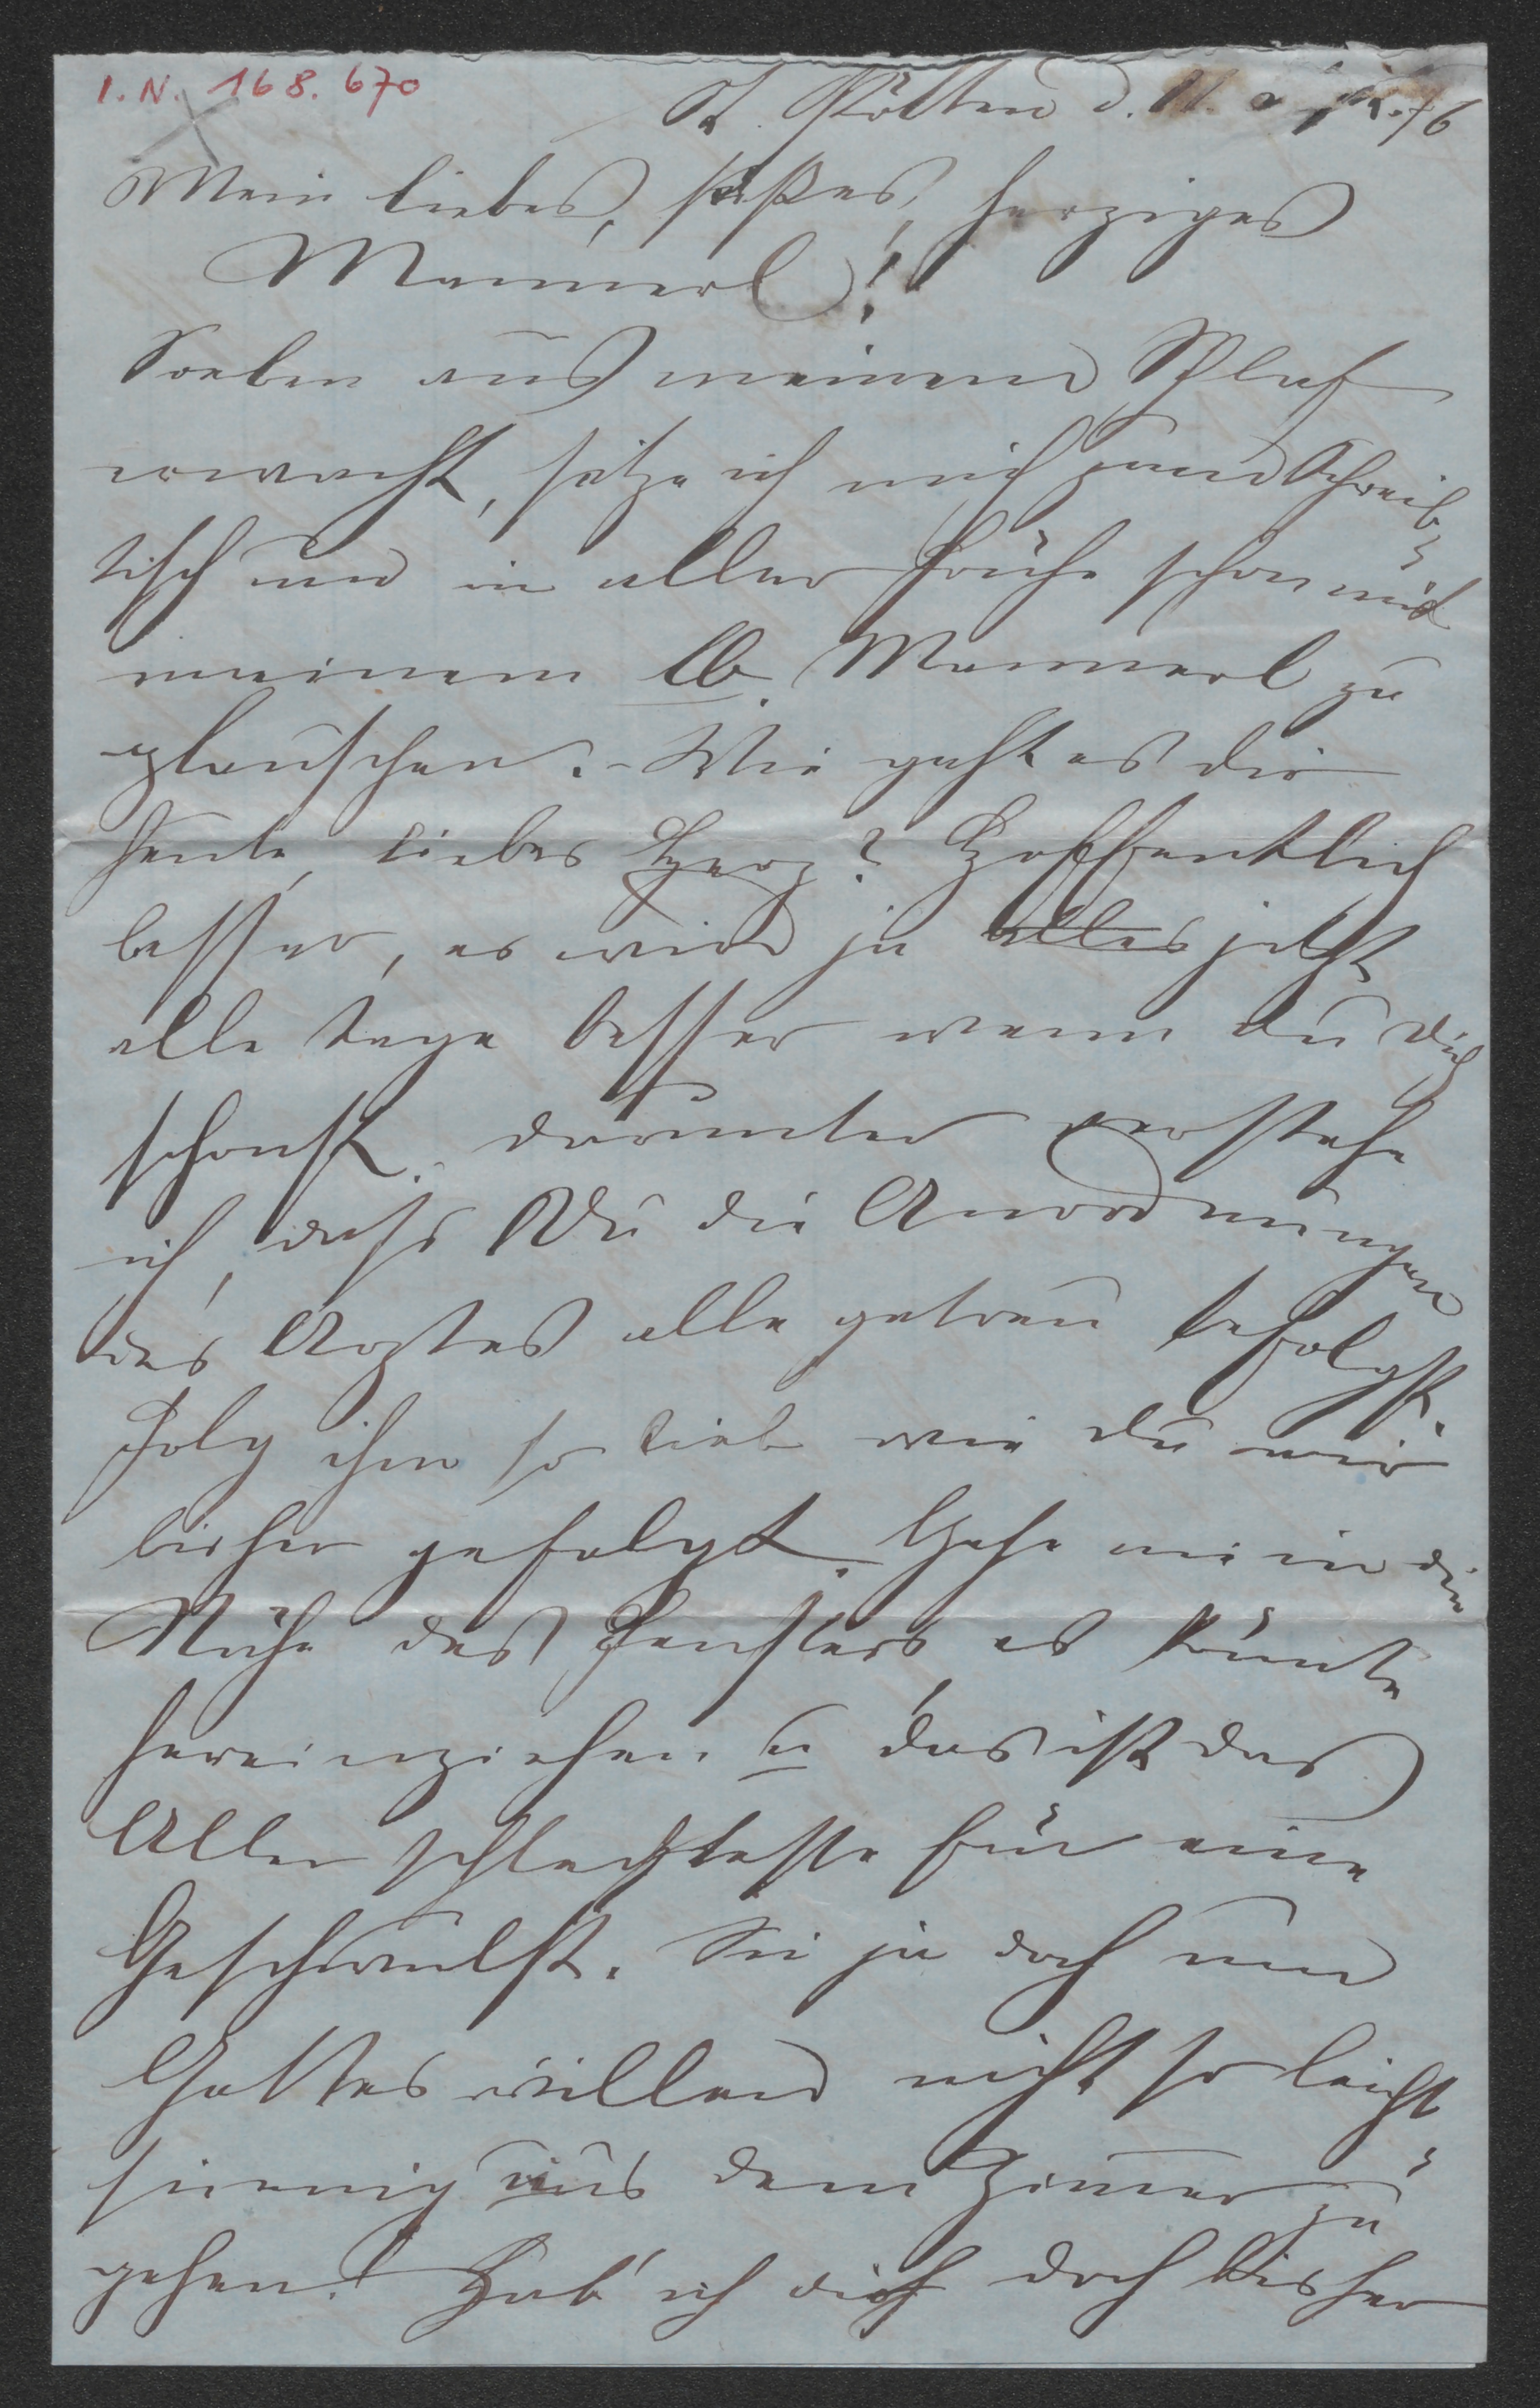 I. N. 168.670
St. Pölten d. 11. 76
Mein liebes, süßes, herziges
Mannerl!
Soeben aus meinem Schlaf
erwacht, setze ich mich zum Schreib-
tisch um in aller Frühe schon mit
meinem lb. Mannerl zu
plauschen. – Wie geht es dir
heute, liebes Herz? Hoffentlich
besser, es wird ja alles jetzt
alle Tage besser wenn du dich
schonst. darunter verstehe
ich, dass Du die Anordnungen
des Arztes alle getreu befolgst.
Folg ihm so lieb wie du mir
bisher gefolgt. Gehe nie in die
Nähe des Fensters, es könnte
hereinziehen u das ist das
Aller schlechteste für eine
Geschwulst. Sei ja doch um
Gottes willen nicht so leicht
sinnig aus dem Zimmer zu
gehen. Hab' ich dich doch bisher